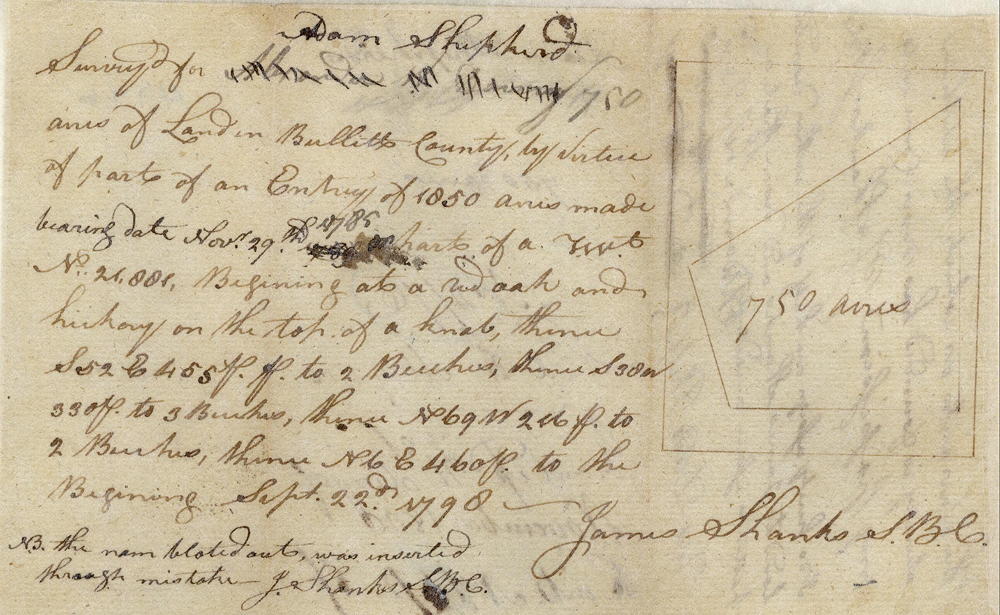 Adam Shepherd
Survey'd for 750
acres of Land in Bullitt County, by virtue
of part of an Entry of 1850 acres made
bearing date Novr. 29.th 1785 part of a Twt.
No. 21,881, Begining at a red oak and
hickory on the top of a knob, thence
S52 E 455 p. p. to 2 Beeches, thence S38W
330p. to 3 Beeches, thence N69W 216 p. to
2 Beeches, thence N6 E 460p. to the
Begining Sept. 22.d 1798
James Shanks S.B.C.
NB. the nam bloted out, was inserted
through mistake J. Shanks S.B.C.
750 acres